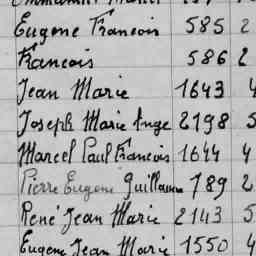 Eugene Francois 585 2
Francois 586 2
Jean Marie 1643 4
Joseph Marie Ange 2198 5
Marcel Paul Francois 1644 4
Pierre Eugene Guillaume 789 2
René Jean Marie 2143 5
Eugene Jean Marie 1550 4